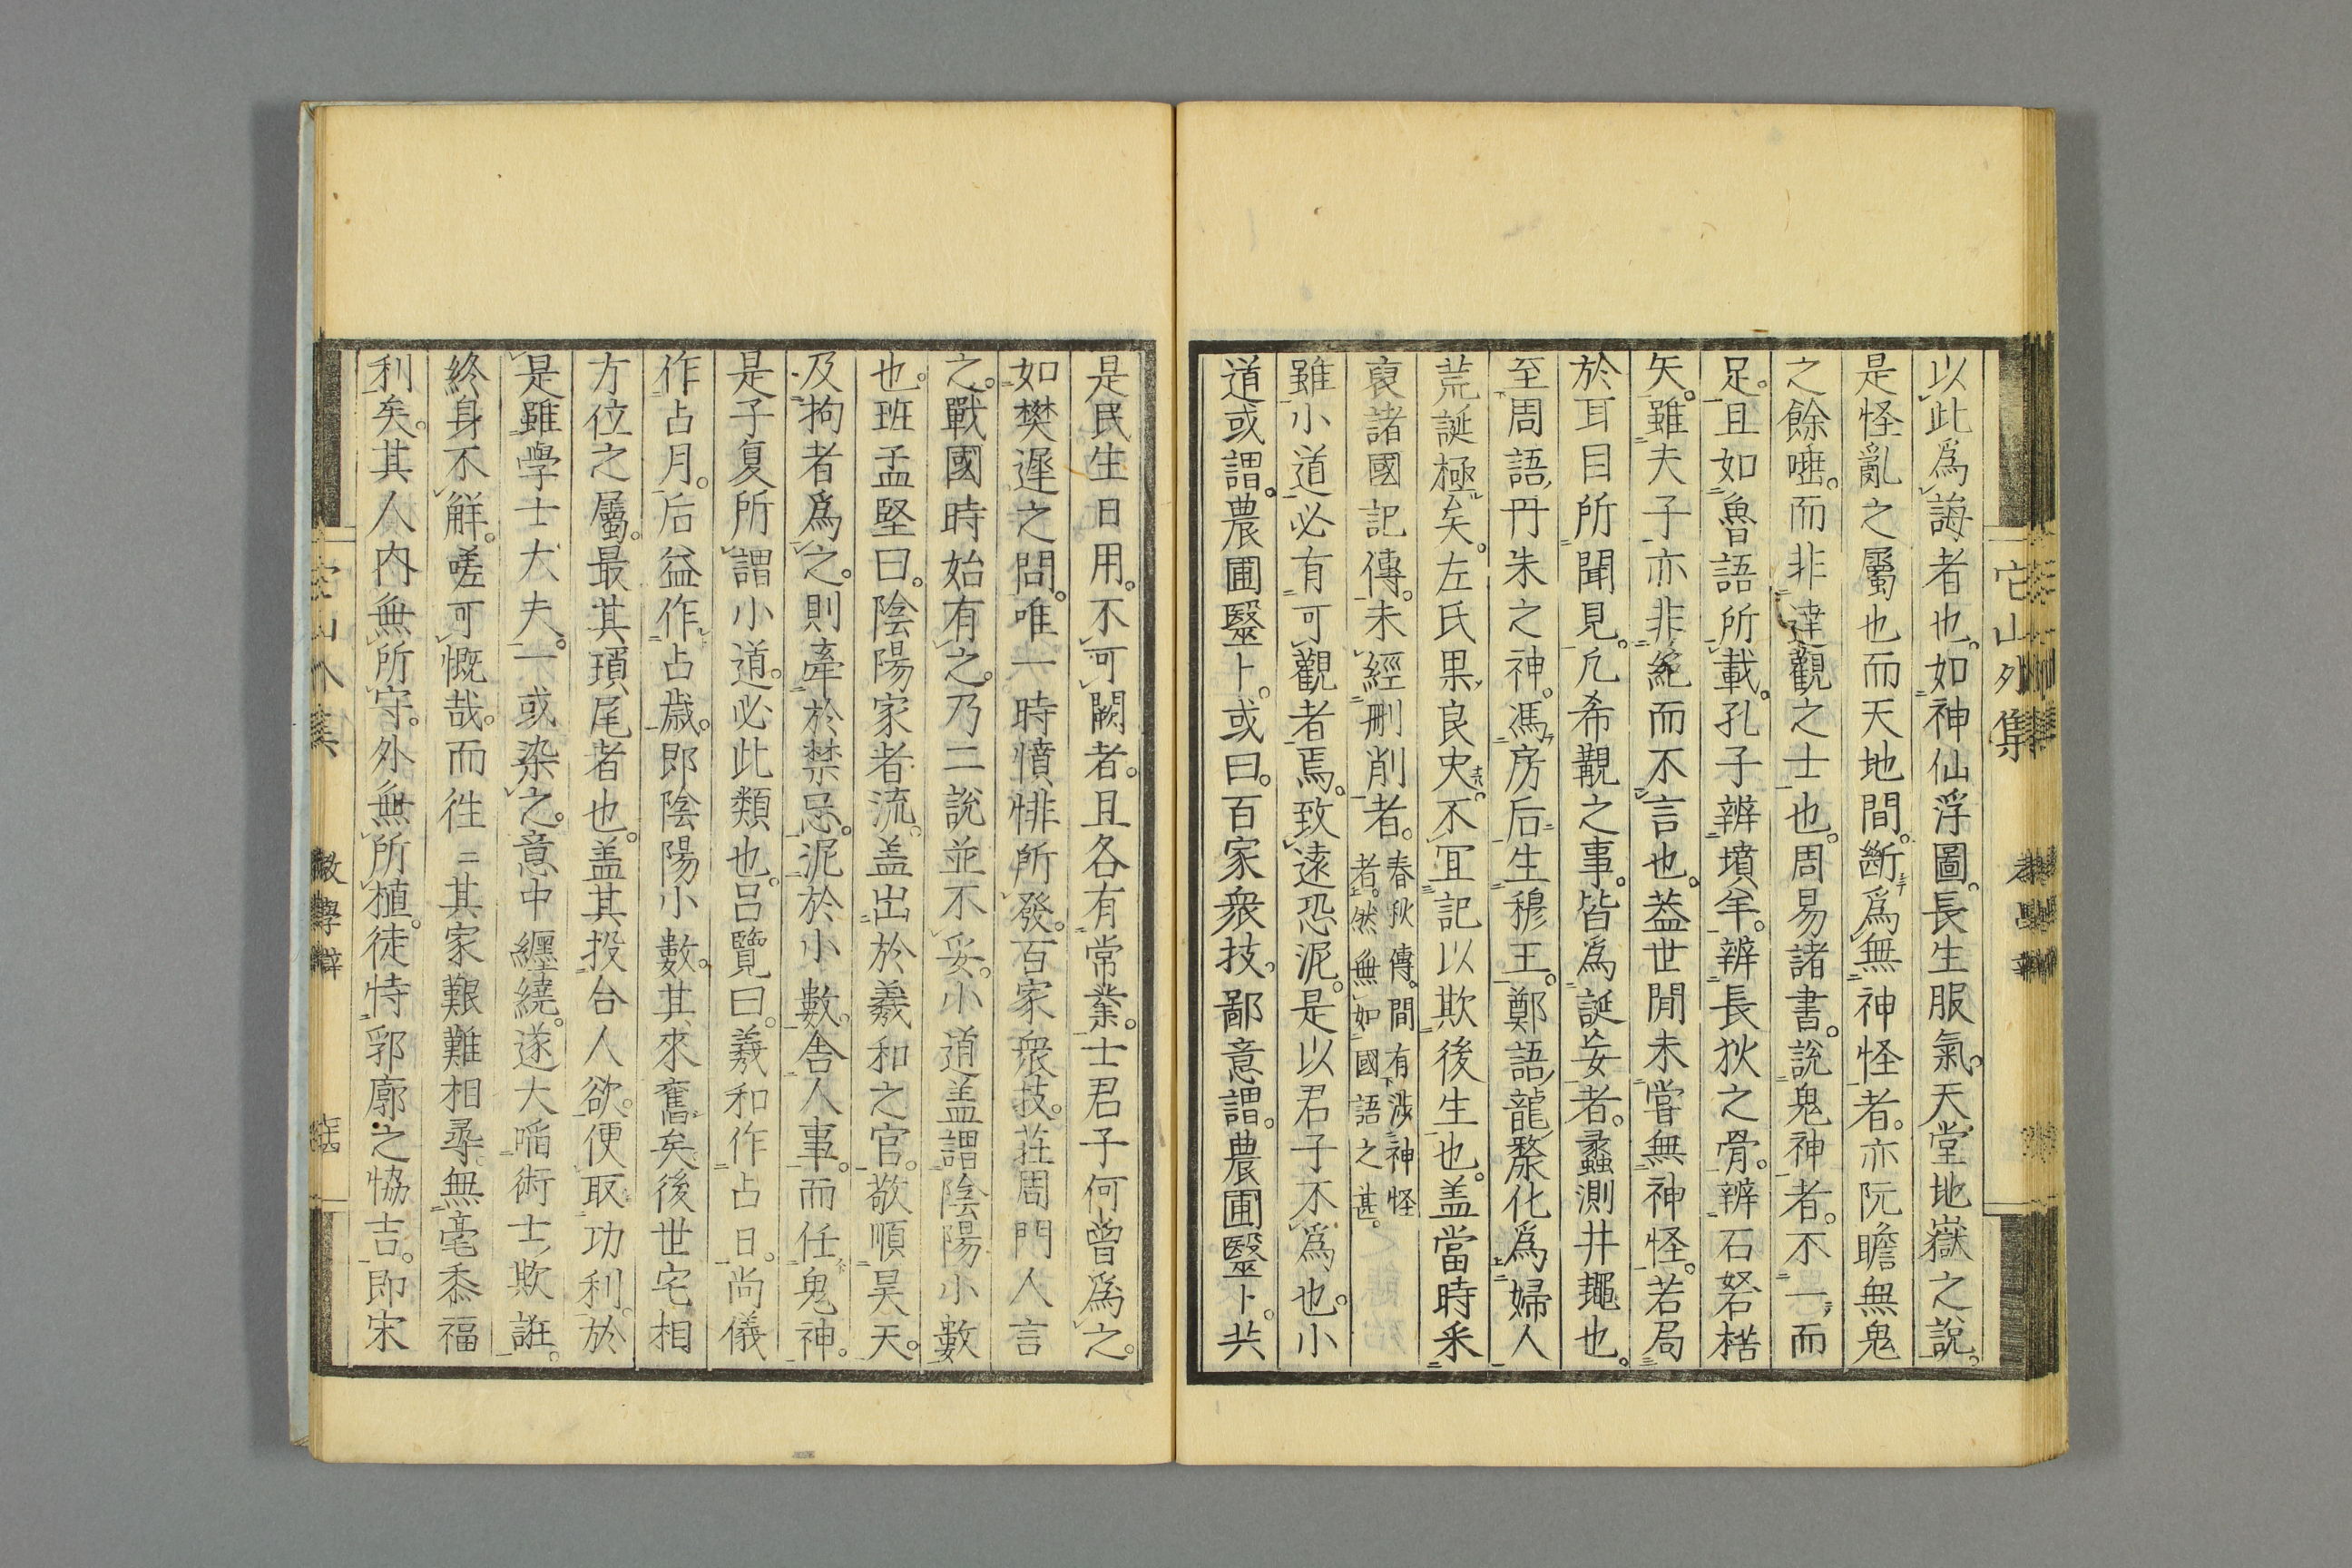 它山外集
以此爲誨者也。如神仙浮圖。長生服氣。天堂地嶽之說。
是怪亂之屬也而天地間。斷爲無神怪者。亦阮瞻無鬼
之餘唾。而非達觀之士也。周易諸書。說鬼神者。不一而
足。且如魯語所載。孔子辨墳羊。辨長狄之骨。辨石砮楛
矢。雖夫子亦非絕而不言也。蓋世閒未嘗無神怪。若局
於耳目所聞見。凡希觀之事。皆爲誕妄者。蠡測井鼃也。
至周語丹朱之神。馮房后生穆王。鄭語龍漦化爲婦人
荒誕極矣。左氏果良史。不宜記以欺後生也。盖當時采
裒諸國記傳。未經刪削者。春秋傳。間有涉神怪
者。然無如國語之甚。
雖小道必有可觀者焉。致遠恐泥。是以君子不爲也。小
道或謂。農圃毉卜。或曰。百家衆技。鄙意謂。農圃毉卜。共
是民生日用。不可闕者。且各有常業。士君子何曾爲之。
如樊遲之問。唯一時憤悱所發。百家衆技。莊周門人言
之。戰國時始有之。乃二說並不妥。小道盖謂陰陽小數
也。班孟堅曰。陰陽家者流。盖出於羲和之官。敬順昊天。
及拘者爲之。則牽於禁忌。泥於小數。舍人事。而任鬼神。
是子夏所謂小道。必此類也。呂覽曰。羲和作占日。尚儀
作占月。后益作占歲。即陰陽小數。其來舊矣後世宅相
方位之屬。最其瑣尾者也。盖其投合人欲。便取功利。於
是雖學士大夫。一或染之。意中纏繞。遂大啗術士欺誑。
終身不解。嗟可慨哉。而徃二其家艱難相尋。無毫黍福
利矣。其人內無所守。外無所植。徒恃郛廓之恊吉。即宋